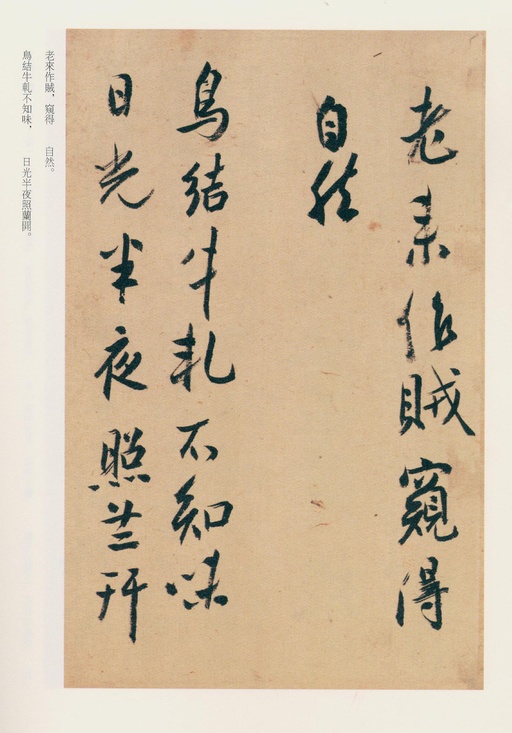 老来作贼窺得
自然
鳥结牛軋不知味
日光半夜照兰开
老來作賊，窺得　自然。
鳥結牛軋不知味，　日光半夜照蘭開。